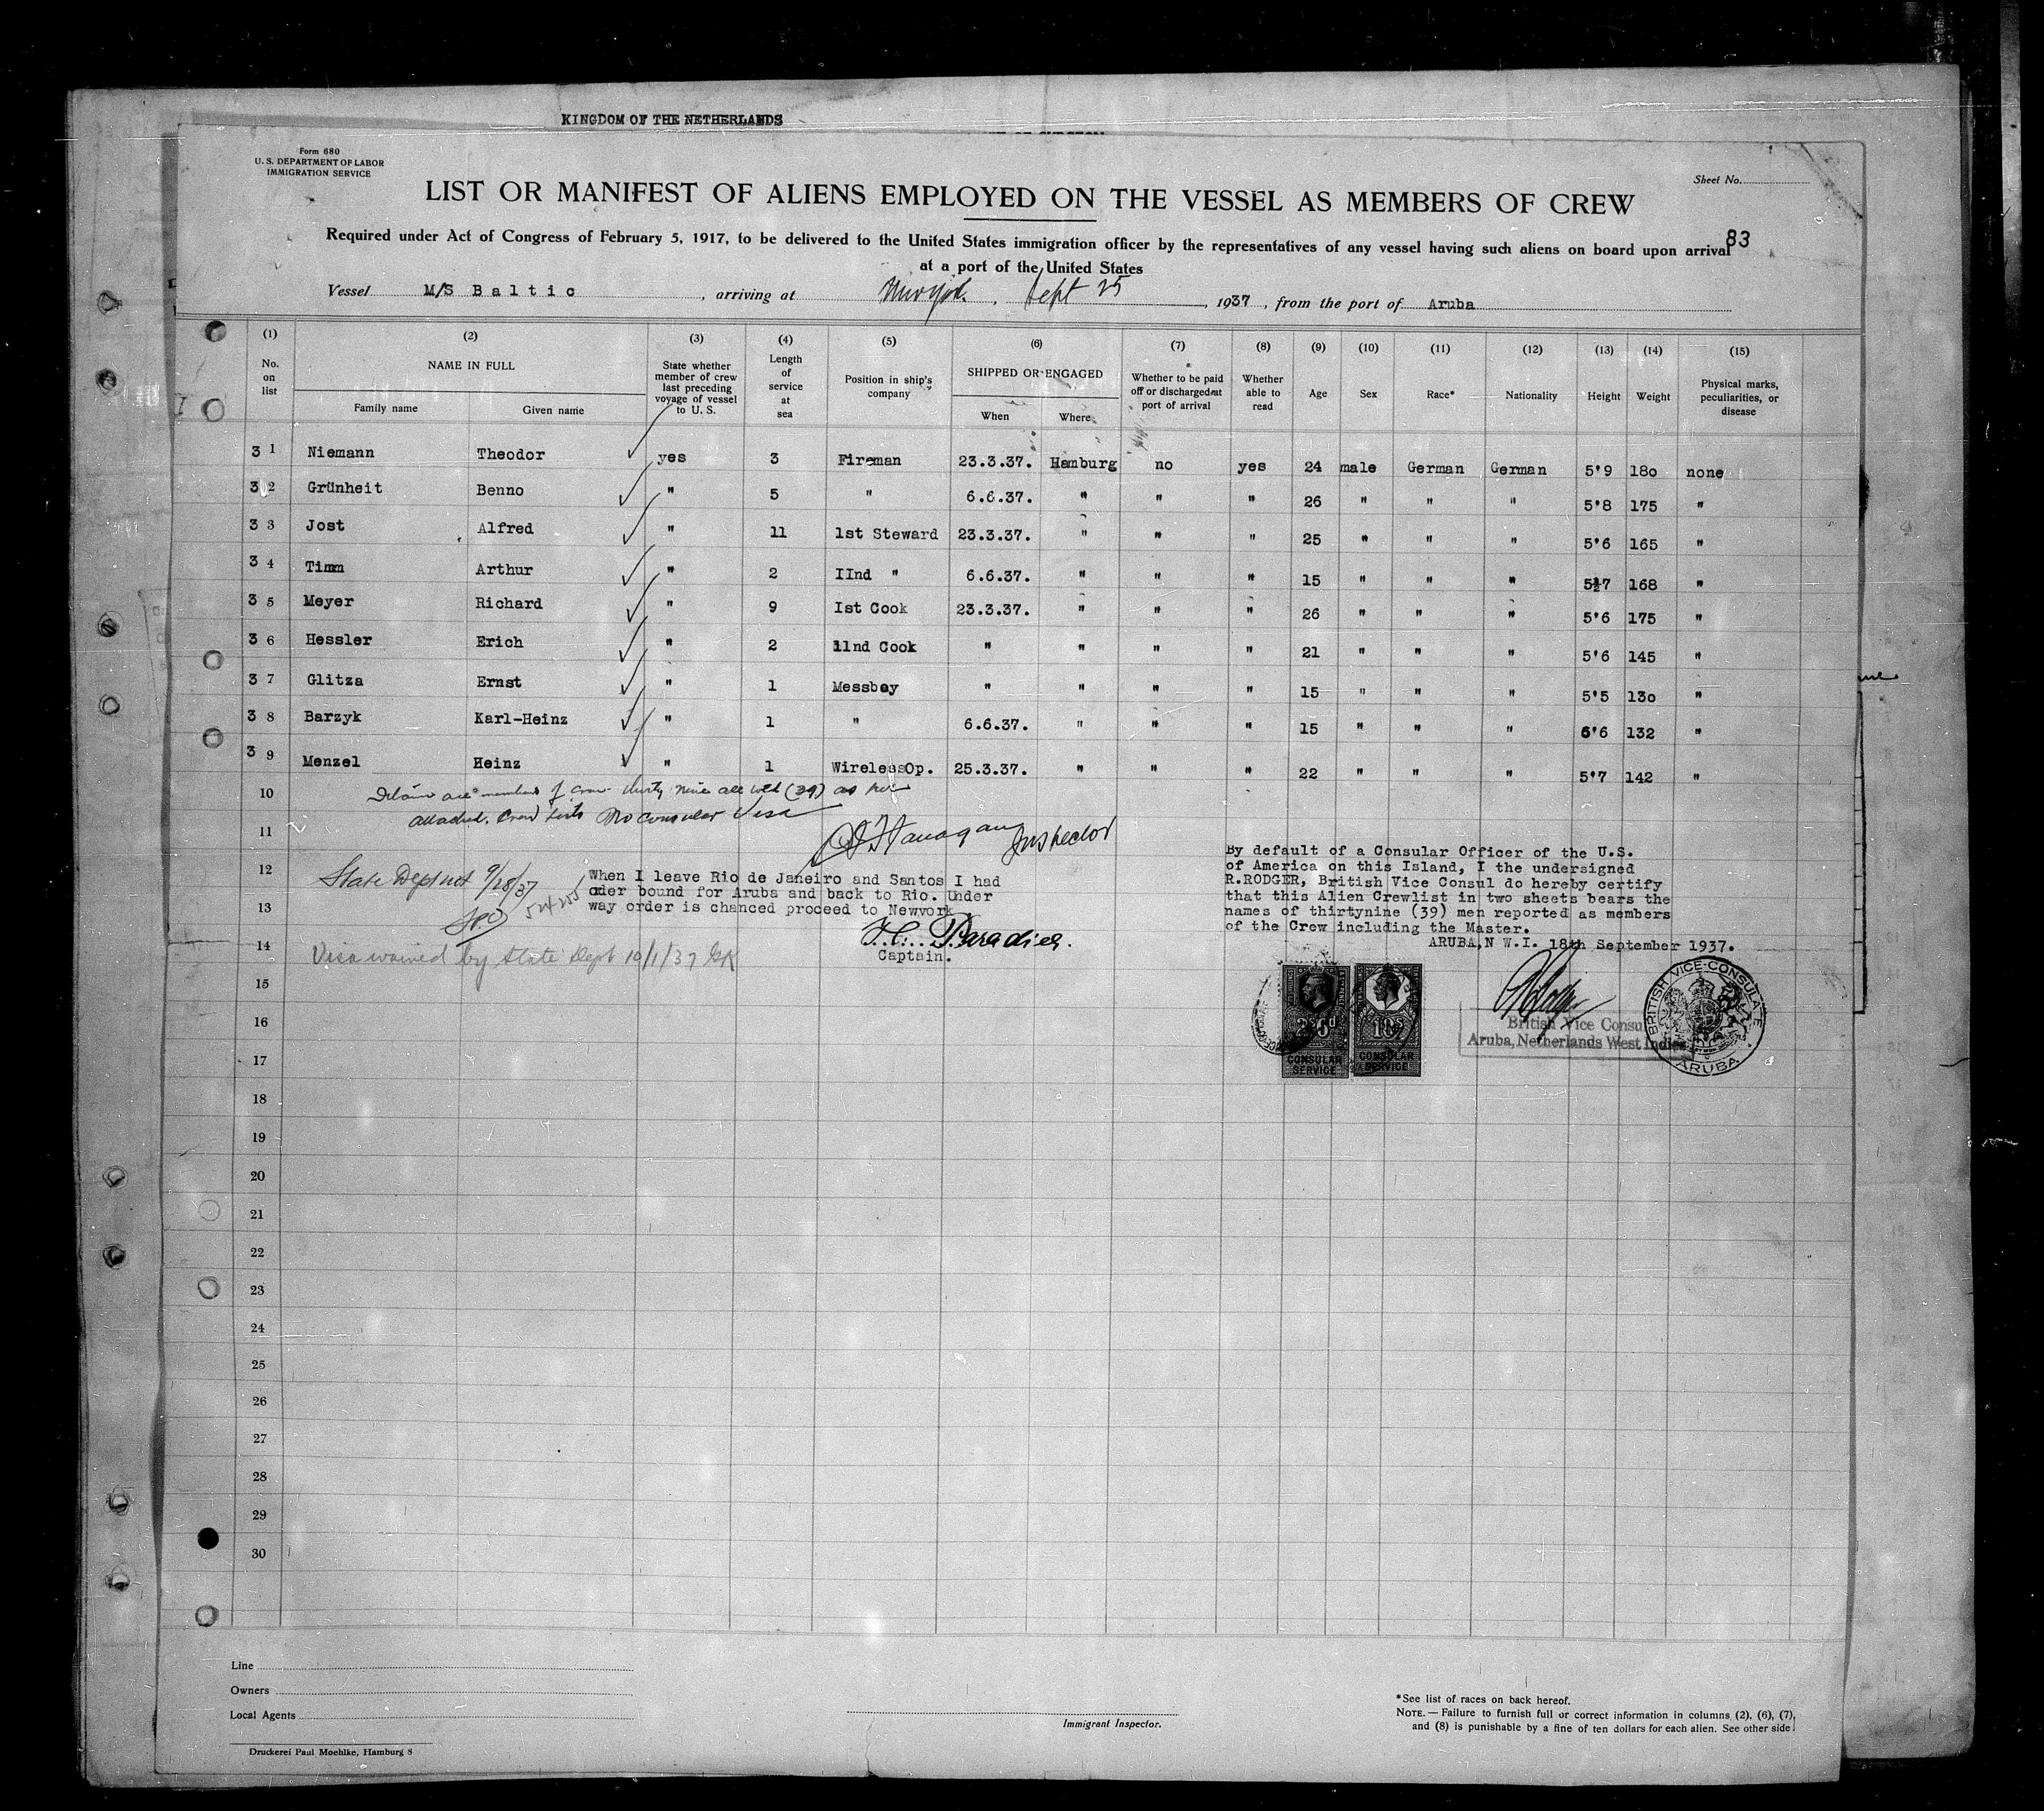 KINGDOM OF THE NETHERLANDS
Form 680
U. S. DEPARTMENT OF LABOR
IMMIGRATION SERVICE
Sheet No.
LIST OR MANIFEST OF ALIENS EMPLOYED ON THE VESSEL AS MEMBERS OF CREW
83
Required under Act of Congress of February 5, 1917, to be delivered to the United States immigration officer by the representatives of any vessel having such aliens on board upon arrival
at a port of the United States
Vessel M/S Baltic, arriving at New York, Sept 25, 1937, from the port of Aruba
(1) (2) (3) (4) (5) (6) (7) (8) (9) (10) (11) (12) (13) (14) (15)
No. on list
NAME IN FULL
Family name Given name
State whether member of crew last preceding voyage of vessel to U. S.
Length of service at sea
Position in ship's company
SHIPPED OR ENGAGED
When Where
Whether to be paid off or discharged at port of arrival
Whether able to read
Age Sex Race* Nationality Height Weight
Physical marks, peculiarities, or disease
31 Niemann Theodor yes 3 Fireman 23.3.37. Hamburg no yes 24 male German German 5'9 180 none
32 Grünheit Benno " 5 " 6.6.37. " " " 26 " " " 5'8 175 "
33 Jost Alfred " 11 1st Steward 23.3.37. " " " 25 " " " 5'6 165 "
34 Timm Arthur " 2 IInd " 6.6.37. " " " 15 " " " 5½7 168 "
35 Meyer Richard " 9 Ist Cook 23.3.37. " " " 26 " " " 5'6 175 "
36 Hessler Erich " 2 IInd Cook " " " " 21 " " " 5'6 145 "
37 Glitza Ernst " 1 Messboy " " " " 15 " " " 5'5 130 "
38 Barzyk Karl-Heinz " 1 " 6.6.37. " " " 15 " " " 6'6 132 "
39 Menzel Heinz " 1 WirelessOp. 25.3.37. " " " 22 " " " 5'7 142 "
10 Detain all members of crew thirty nine all told (39) as per
attached Crew Lists No Consular Visa
11 Flanagan Inspector
12 State Dept 9/28/37
When I leave Rio de Janeiro and Santos I had
oder bound for Aruba and back to Rio. Under
13 way order is chanced proceed to Newyork
F. C. Paradies.
Captain.
14 Visa waived by State Dept 10/1/37 GK
By default of a Consular Officer of the U.S.
of America on this Island, I the undersigned
R.RODGER, British Vice Consul do hereby certify
that this Alien Crewlist in two sheets bears the
names of thirtynine (39) men reported as members
of the Crew including the Master.
ARUBA,N W.I. 18th September 1937.
2s6d
CONSULAR SERVICE
10s
CONSULAR SERVICE
British Vice Consul
Aruba, Netherlands West Indies
BRITISH VICE-CONSULATE
ARUBA
15
16
17
18
19
20
21
22
23
24
25
26
27
28
29
30
Line
Owners
Local Agents
Immigrant Inspector.
*See list of races on back hereof.
NOTE. — Failure to furnish full or correct information in columns (2), (6), (7),
and (8) is punishable by a fine of ten dollars for each alien. See other side.
Druckerei Paul Moehlke, Hamburg 8